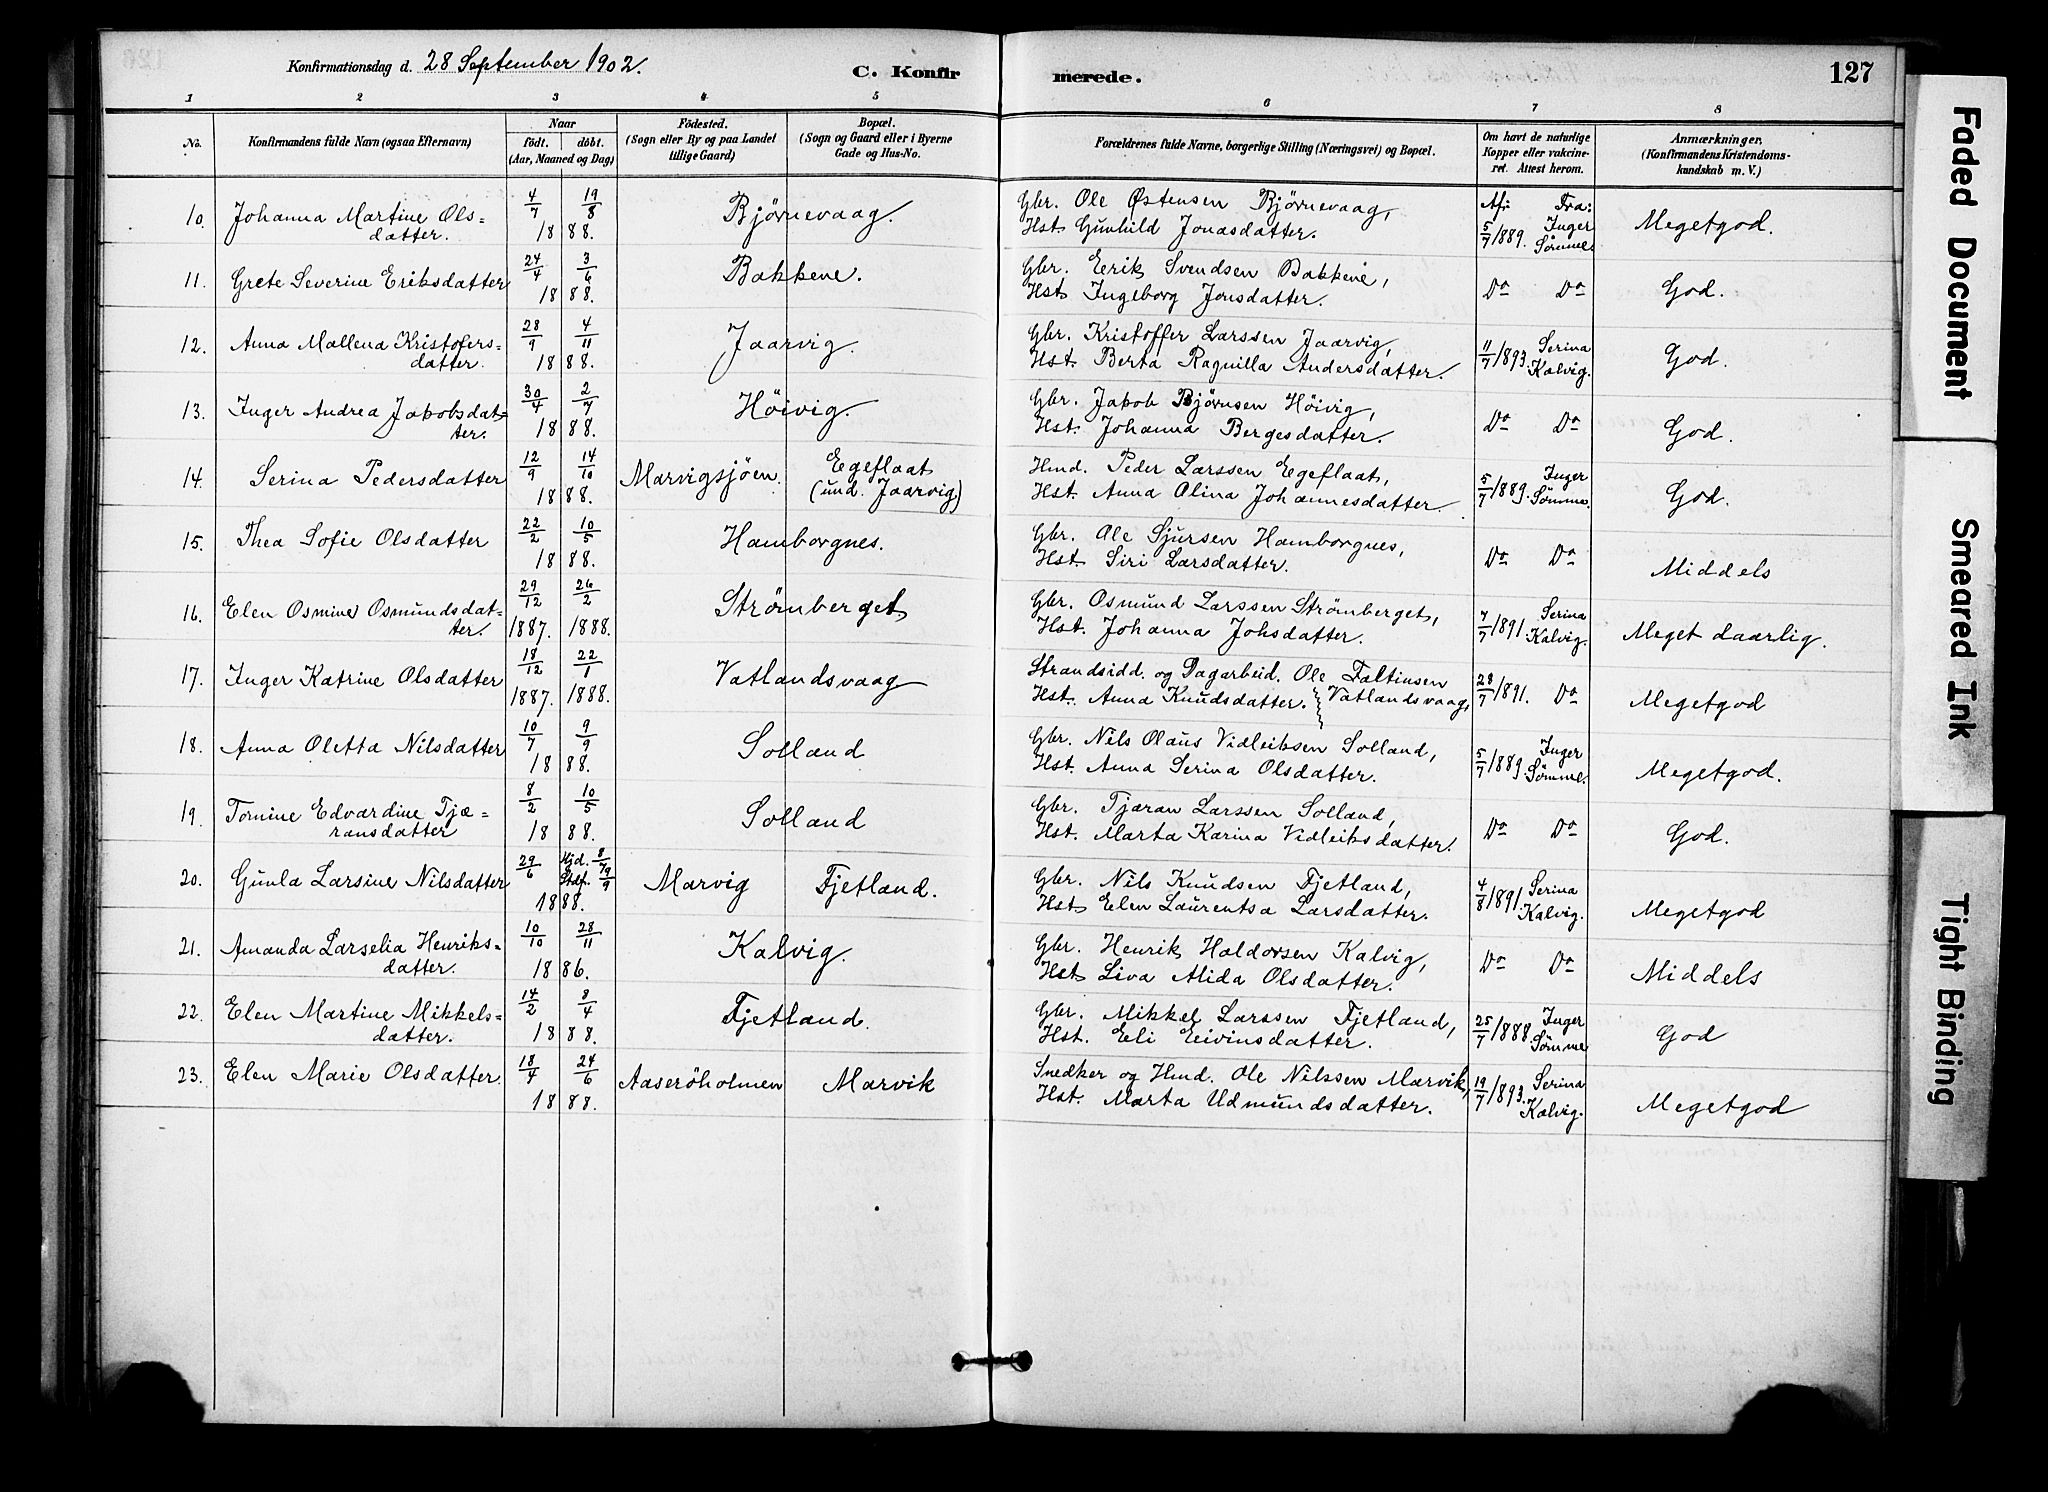 Konfirmationsdag d. 28 September 1902.
C. Konfirmerede.
127
1 2 3 4 5 6 7 8
No. Konfirmandens fulde Navn (ogsaa Efternavn) Naar födt. döbt. (Aar, Maaned og Dag) Födested. (Sogn eller By og paa Landet tillige Gaard) Bopæl. (Sogn og Gaard eller i Byerne Gade og Hus-No. Forældrenes fulde Navne, borgerlige Stilling (Næringsvei) og Bopæl. Om havt de naturlige Kopper eller vakcineret. Attest herom. Anmærkninger, (Konfirmandens Kristendomskundskab m. V.)
10. Johanna Martine Ols= 4/7 19/8 Bjørnevaag. Gbr. Ole Østensen Bjørnevaag, Af: Fra:
datter. 18 88. Hst Gunhild Jonasdatter. 5/7 1889. Inger Sømme. Megetgod.
11. Grete Severine Eriksdatter 24/4 3/6 Bakkene. Gbr. Eerik Svendsen Bakkene,
18 88. Hst Ingeborg Jonsdatter. Do Do God.
12. Anna Mallena Kristofers= 28/9 4/11 Jaarvig. Gbr. Kristoffer Larssen Jaarvig,
datter. 18 88. Hst. Berta Ragnilla Andersdatter. 11/7 1893. Serina Kalvig. God.
13. Inger Andrea Jakobsdat= 30/4 2/7 Höivig. Gbr. Jakob Bjørnsen Höivig,
ter. 18 88. Hst. Johanna Bergesdatter. Do Do God.
14. Serina Pedersdatter 12/9 14/10 Marvigsjöen. Egeflaat Hmd. Peder Larssen Egeflaat,
18 88. (und. Jaarvig) Hst. Anna Olina Johannesdatter 5/7 1889. Inger Sømme. God.
15. Thea Sofie Olsdatter 22/2 10/5 Hamborgnes. Gbr. Ole Sjursen Hamborgnes,
18 88. Hst. Siri Larsdatter. Do Do Middels
16. Elen Osmine Osmundsdat= 29/12 26/2 Strømberget Gbr. Osmund Larssen Strømberget,
ter. 1887. 1888. Hst. Johanna Johsdatter. 7/7 1891. Serina Kalvig. Meget daarlig.
17. Inger Katrine Olsdatter 18/12 22/1 Vatlandsvaag Strandsidd. og Dagarbeid. Ole Faltinsen
1887. 1888. Hst. Anna Knudsdatter. Vatlandsvaag, 28/7 1891. Do Megetgod
18. Anna Oletta Nilsdatter 10/7 9/9 Solland Gbr. Nils Olaus Vidleiksen Solland,
18 88. Hst. Anna Serina Olsdatter. 5/7 1889. Inger Sømme. Megetgod.
19. Tornine Edvardine Tjæ= 8/2 10/5 Solland Gbr. Tjæran Larssen Solland,
ransdatter 18 88. Hst. Marta Karina Vidleiksdatter. Do Do God.
20. Gunla Larsine Nilsdatter 29/6 Hjd. 8/7 Stdf. 9/9 Marvig Fjetland. Gbr. Nils Knudsen Fjetland,
1888. Hst Elen Laurentsa Larsdatter. 4/8 1891. Serina Kalvig. Megetgod
21. Amanda Larselia Henriks= 10/10 28/11 Kalvig. Gbr. Henrik Haldorsen Kalvig,
datter. 18 86. Hst Liva Alida Olsdatter. Do Do Middels
22. Elen Martine Mikkels= 14/2 8/4 Fjetland. Gbr. Mikkel Larssen Fjetland,
datter. 18 88. Hst. Eli Eivinsdatter. 25/7 1888. Inger Sømme God
23. Elen Marie Olsdatter. 18/4 24/6 Aaseröholmen Marvik Snedker og Hmd. Ole Nilssen Marvik,
18 88. Hst. Marta Udmundsdatter. 19/7 1893. Serina Kalvig. Megetgod
Faded Document
Smeared Ink
Tight Binding